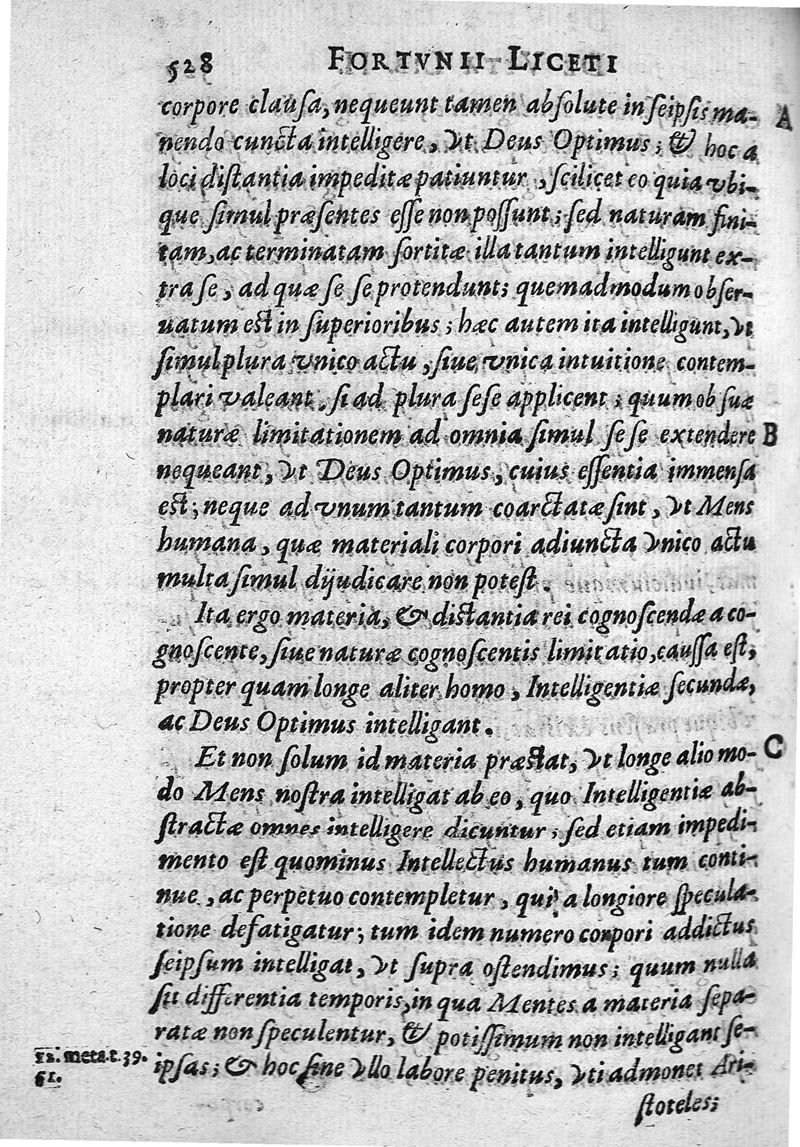 528 FORTVNII LICETI
corpore clauſa, nequeunt tamen abſolute in ſeipſis ma- A
nendo cuncta intelligere, vt Deus Optimus; & hoc a
loci diſtantia impeditæ patiuntur, ſcilicet eo quia vbi-
que ſimul præſentes eſſe non poſſunt; ſed naturam fini-
tam, ac terminatam ſortitæ illa tantum intelligunt ex-
tra ſe, ad quæ ſe ſe protendunt; quemadmodum obſer-
uatum eſt in ſuperioribus; hæc autem ita intelligunt, vt
ſimul plura vnico actu, ſiue vnica intuitione contem-
plari valeant, ſi ad plura ſeſe applicent; quum ob ſuæ
naturæ limitationem ad omnia ſimul ſe ſe extendere B
nequeant, vt Deus Optimus, cuius eſſentia immenſa
eſt; neque ad vnum tantum coarctatæ ſint, vt Mens
humana, quæ materiali corpori adiuncta vnico actu
multa ſimul dijudicare non poteſt.
Ita ergo materia, & diſtantia rei cognoſcendæ a co-
gnoſcente, ſiue naturæ cognoſcentis limitatio, cauſſa eſt,
propter quam longe aliter homo, Intelligentiæ ſecundæ,
ac Deus Optimus intelligant.
Et non ſolum id materia præſtat, vt longe alio mo- C
do Mens noſtra intelligat ab eo, quo Intelligentiæ ab-
ſtractæ omnes intelligere dicuntur; ſed etiam impedi-
mento eſt quominus Intellectus humanus tum conti-
nue, ac perpetuo contempletur, qui a longiore ſpecula-
tione defatigatur; tum idem numero corpori addictus
ſeipſum intelligat, vt ſupra oſtendimus; quum nulla
ſit differentia temporis, in qua Mentes a materia ſepa-
ratæ non ſpeculentur, & potiſſimum non intelligant ſe-
12. meta.t.39. ipſas; & hoc ſine vllo labore penitus, vti admonet Ari-
51.
ſtoteles;